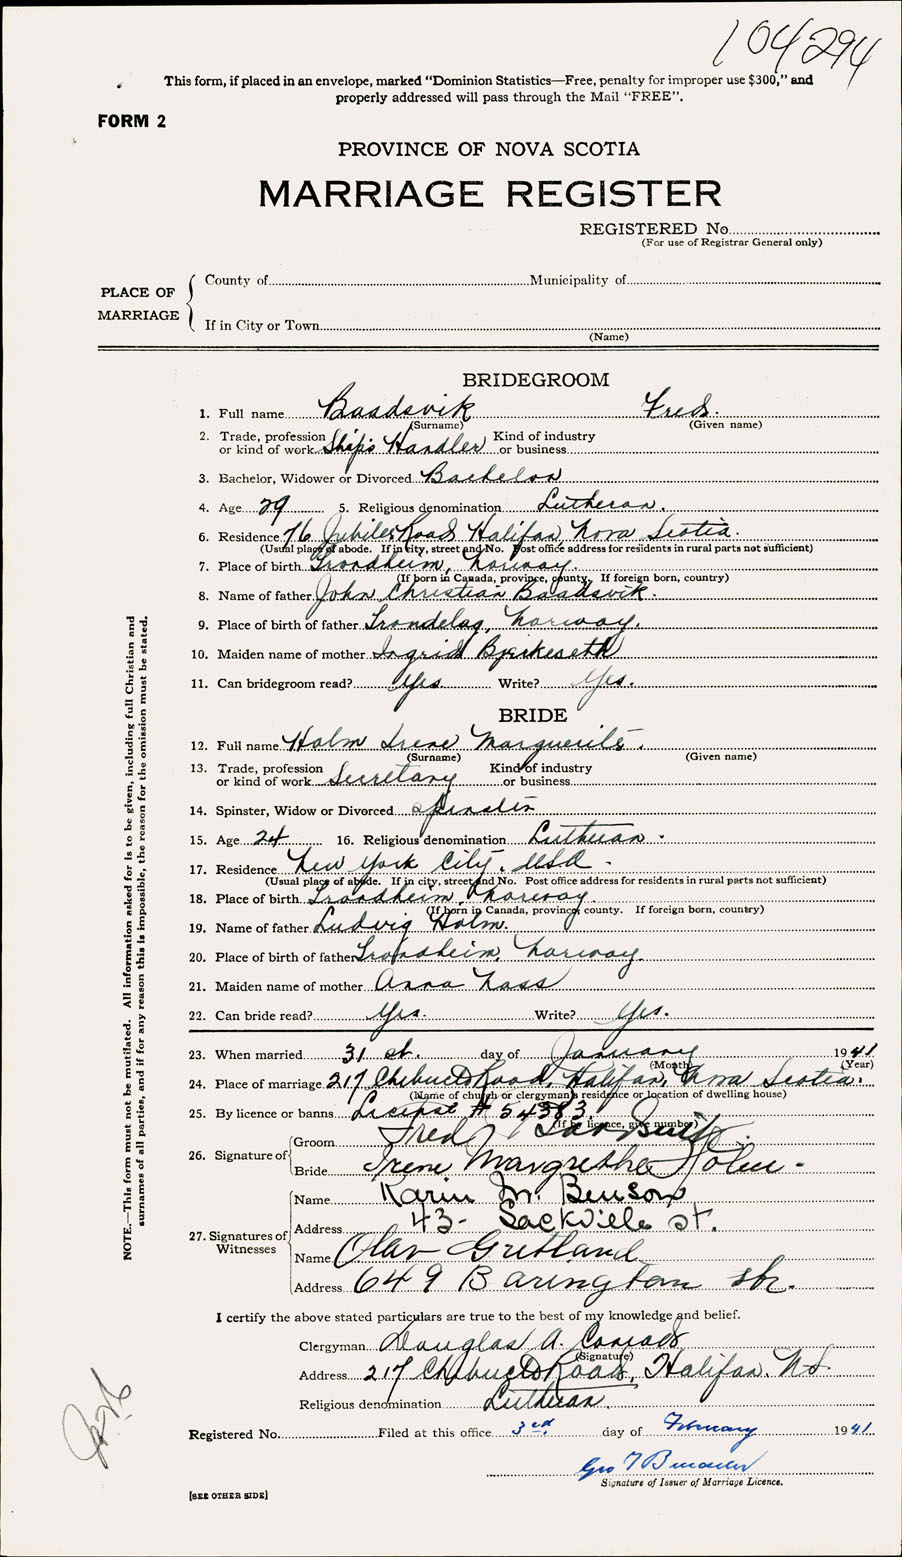 104294
This form, if placed in an envelope, marked “Dominion Statistics—Free, penalty for improper use $300,” and
properly addressed will pass through the Mail “FREE”.
FORM 2
PROVINCE OF NOVA SCOTIA
MARRIAGE REGISTER
REGISTERED No.
(For use of Registrar General only)
PLACE OF MARRIAGE
County of Municipality of
If in City or Town
(Name)
BRIDEGROOM
1. Full name Baadsvik Fred.
(Surname) (Given name)
2. Trade, profession or kind of work Ship's Handler Kind of industry or business
3. Bachelor, Widower or Divorced Bachelor
4. Age 29 5. Religious denomination Lutheran.
6. Residence 76 Jubilee Road Halifax, Nova Scotia.
(Usual place of abode. If in city, street and No. Post office address for residents in rural parts not sufficient)
7. Place of birth Trondheim, Norway.
(If born in Canada, province, county. If foreign born, country)
8. Name of father John Christian Baadsvik.
9. Place of birth of father Trondelag, Norway.
10. Maiden name of mother Ingrid Bjerkeseth
11. Can bridegroom read? Yes Write? Yes.
BRIDE
12. Full name Holm Irene Marguerite.
(Surname) (Given name)
13. Trade, profession or kind of work Secretary Kind of industry or business
14. Spinster, Widow or Divorced Spinster
15. Age 24 16. Religious denomination Lutheran.
17. Residence New York City, USA.
(Usual place of abode. If in city, street and No. Post office address for residents in rural parts not sufficient)
18. Place of birth Trondheim, Norway.
(If born in Canada, province, county. If foreign born, country)
19. Name of father Ludvig Holm.
20. Place of birth of father Trondheim, Norway.
21. Maiden name of mother Anna Nass
22. Can bride read? Yes. Write? Yes.
23. When married 31 st. day of January 1941
(Month) (Year)
24. Place of marriage 217 Chebucto Road, Halifax, Nova Scotia.
(Name of church or clergyman's residence or location of dwelling house)
25. By licence or banns License # 54383
(If by licence, give number)
26. Signature of
Groom Fred
Bride Irene Margrethe Holm.
27. Signatures of Witnesses
Name Karin M. Benson
Address 43- Sackville St.
Name Olav Gretland
Address 649 Barington str.
I certify the above stated particulars are true to the best of my knowledge and belief.
Clergyman Douglas A. Conrad
(Signature)
Address 217 Chebucto Road, Halifax, N.S.
Religious denomination Lutheran.
Registered No. Filed at this office 3rd day of February 1941
Geo T
Signature of Issuer of Marriage Licence.
[SEE OTHER SIDE]
NOTE.—This form must not be mutilated. All information asked for is to be given, including full Christian and
surnames of all parties, and if for any reason this is impossible, the reason for the omission must be stated.